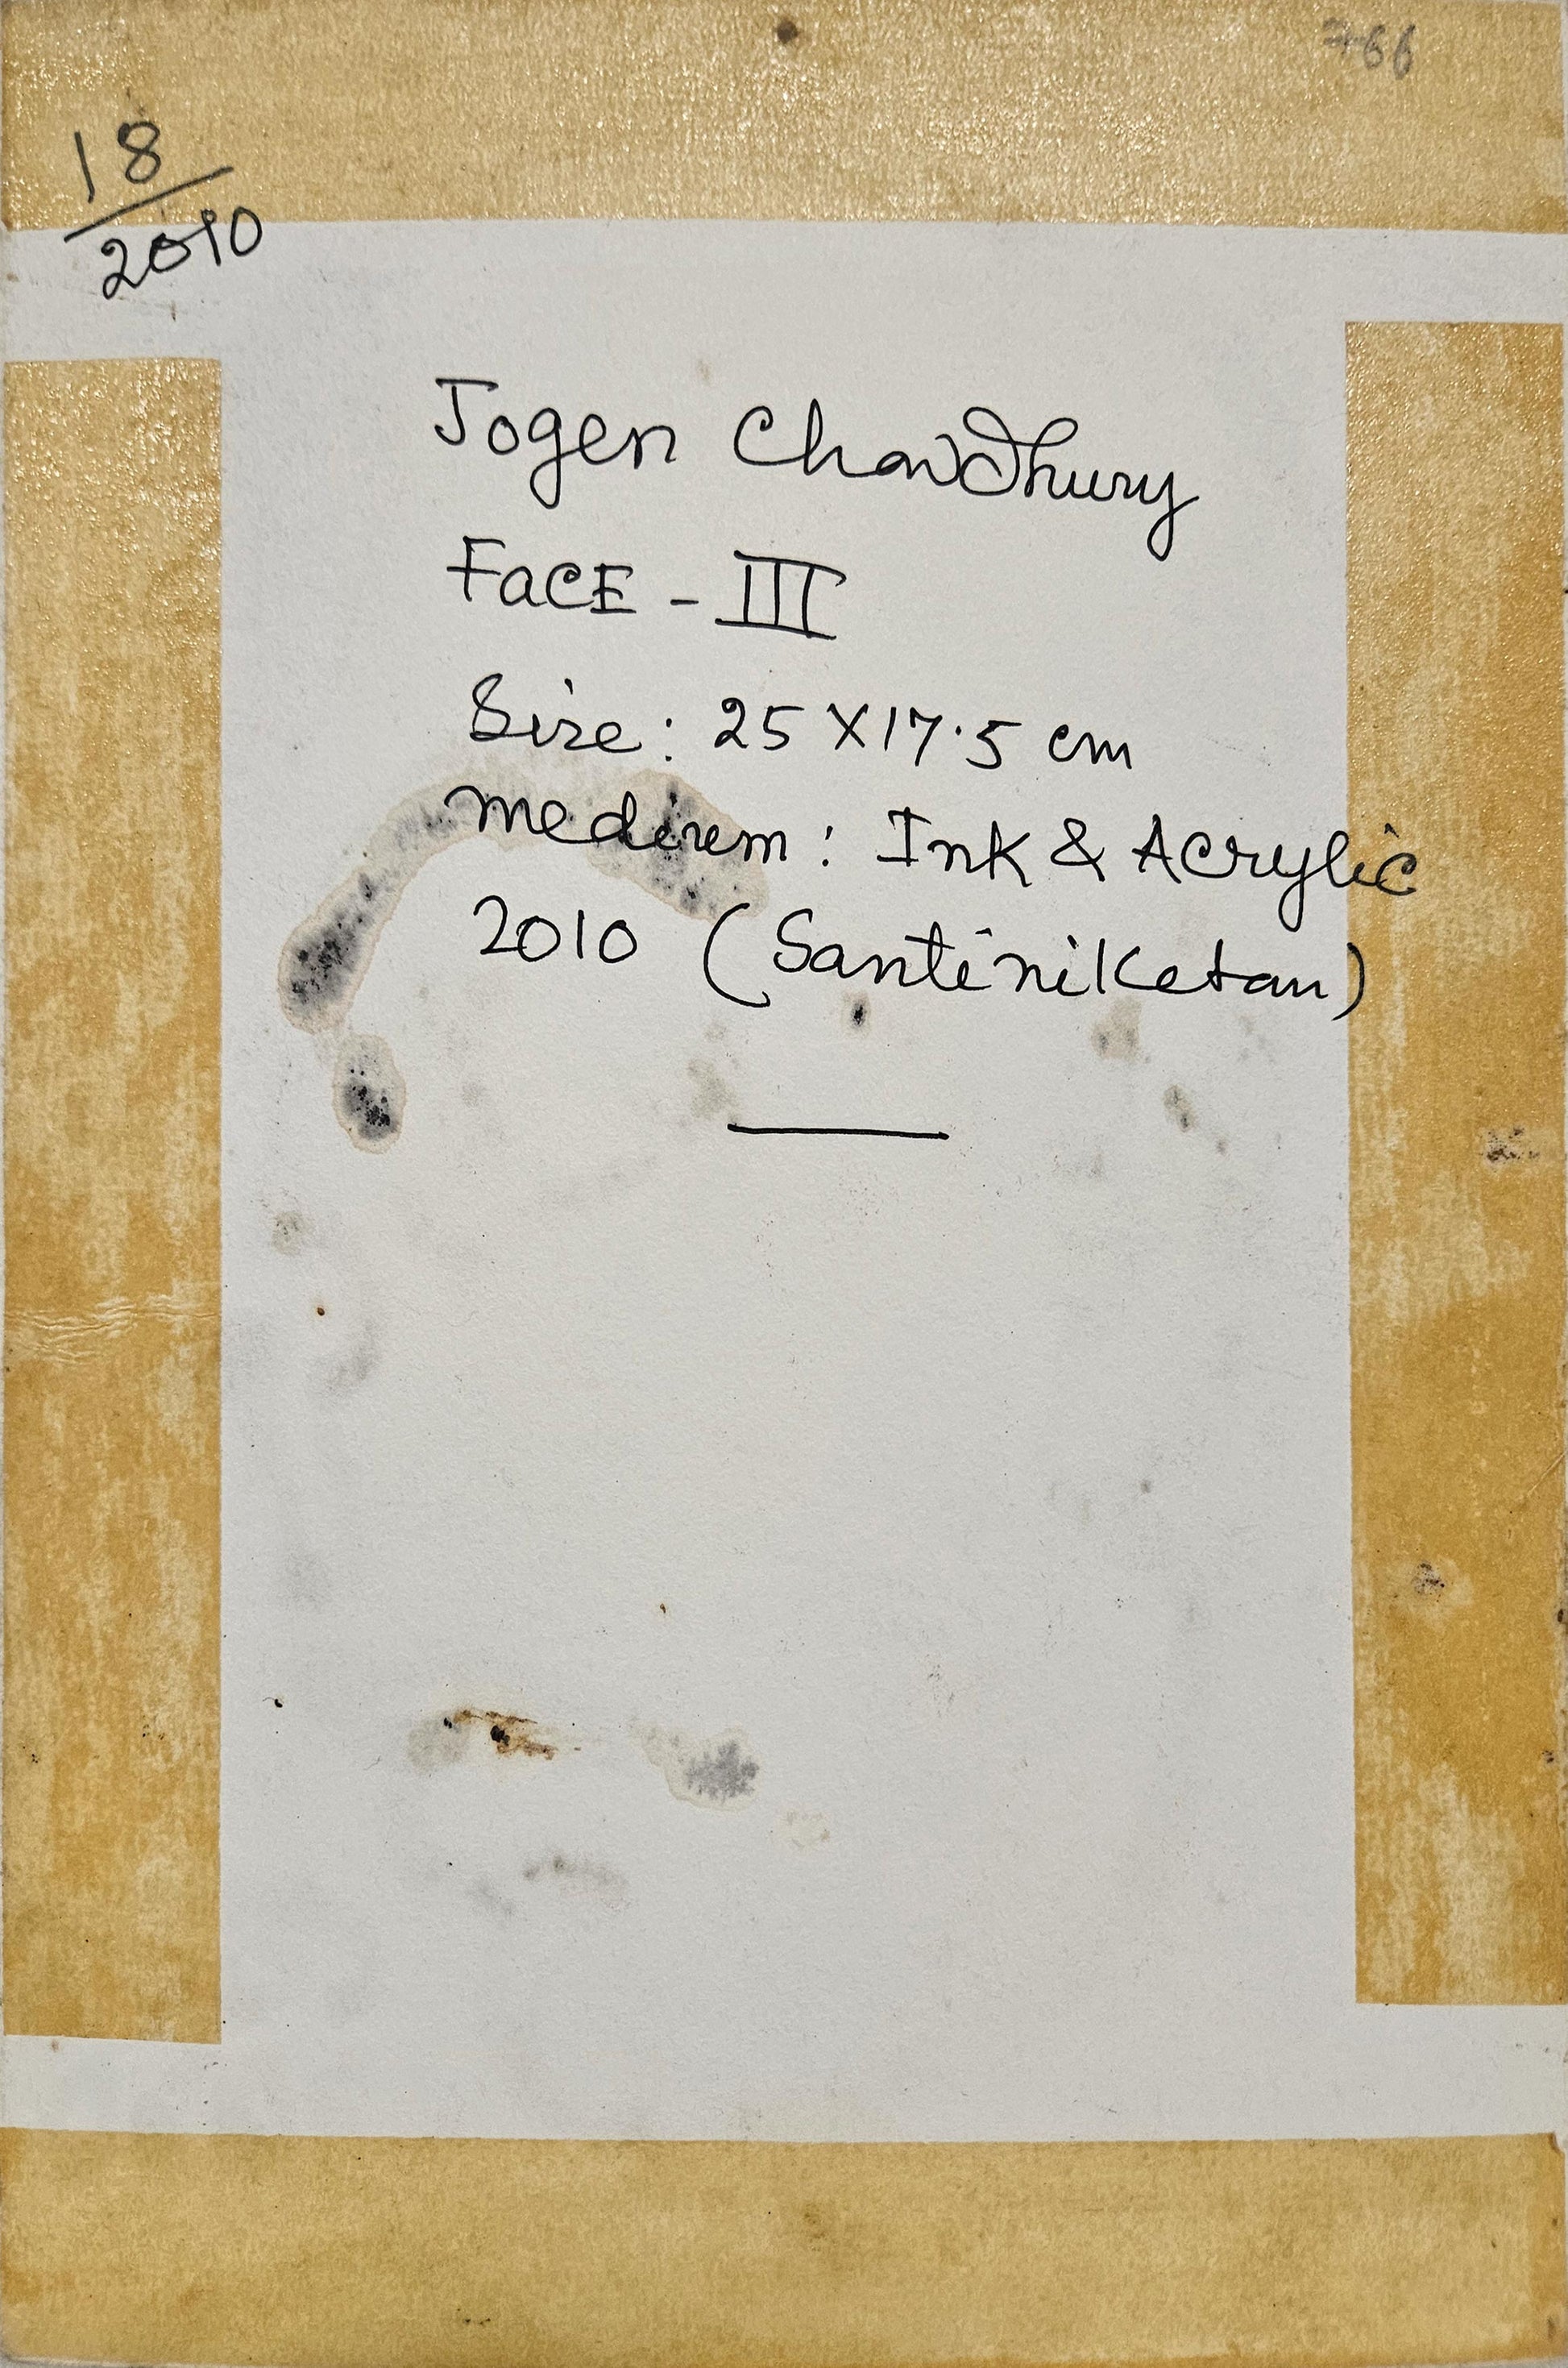 766
18
2010
Jogen Chowdhury
FACE - III
Size: 25 X 17.5 cm
medium: Ink & Acrylic
2010 (Santiniketan)